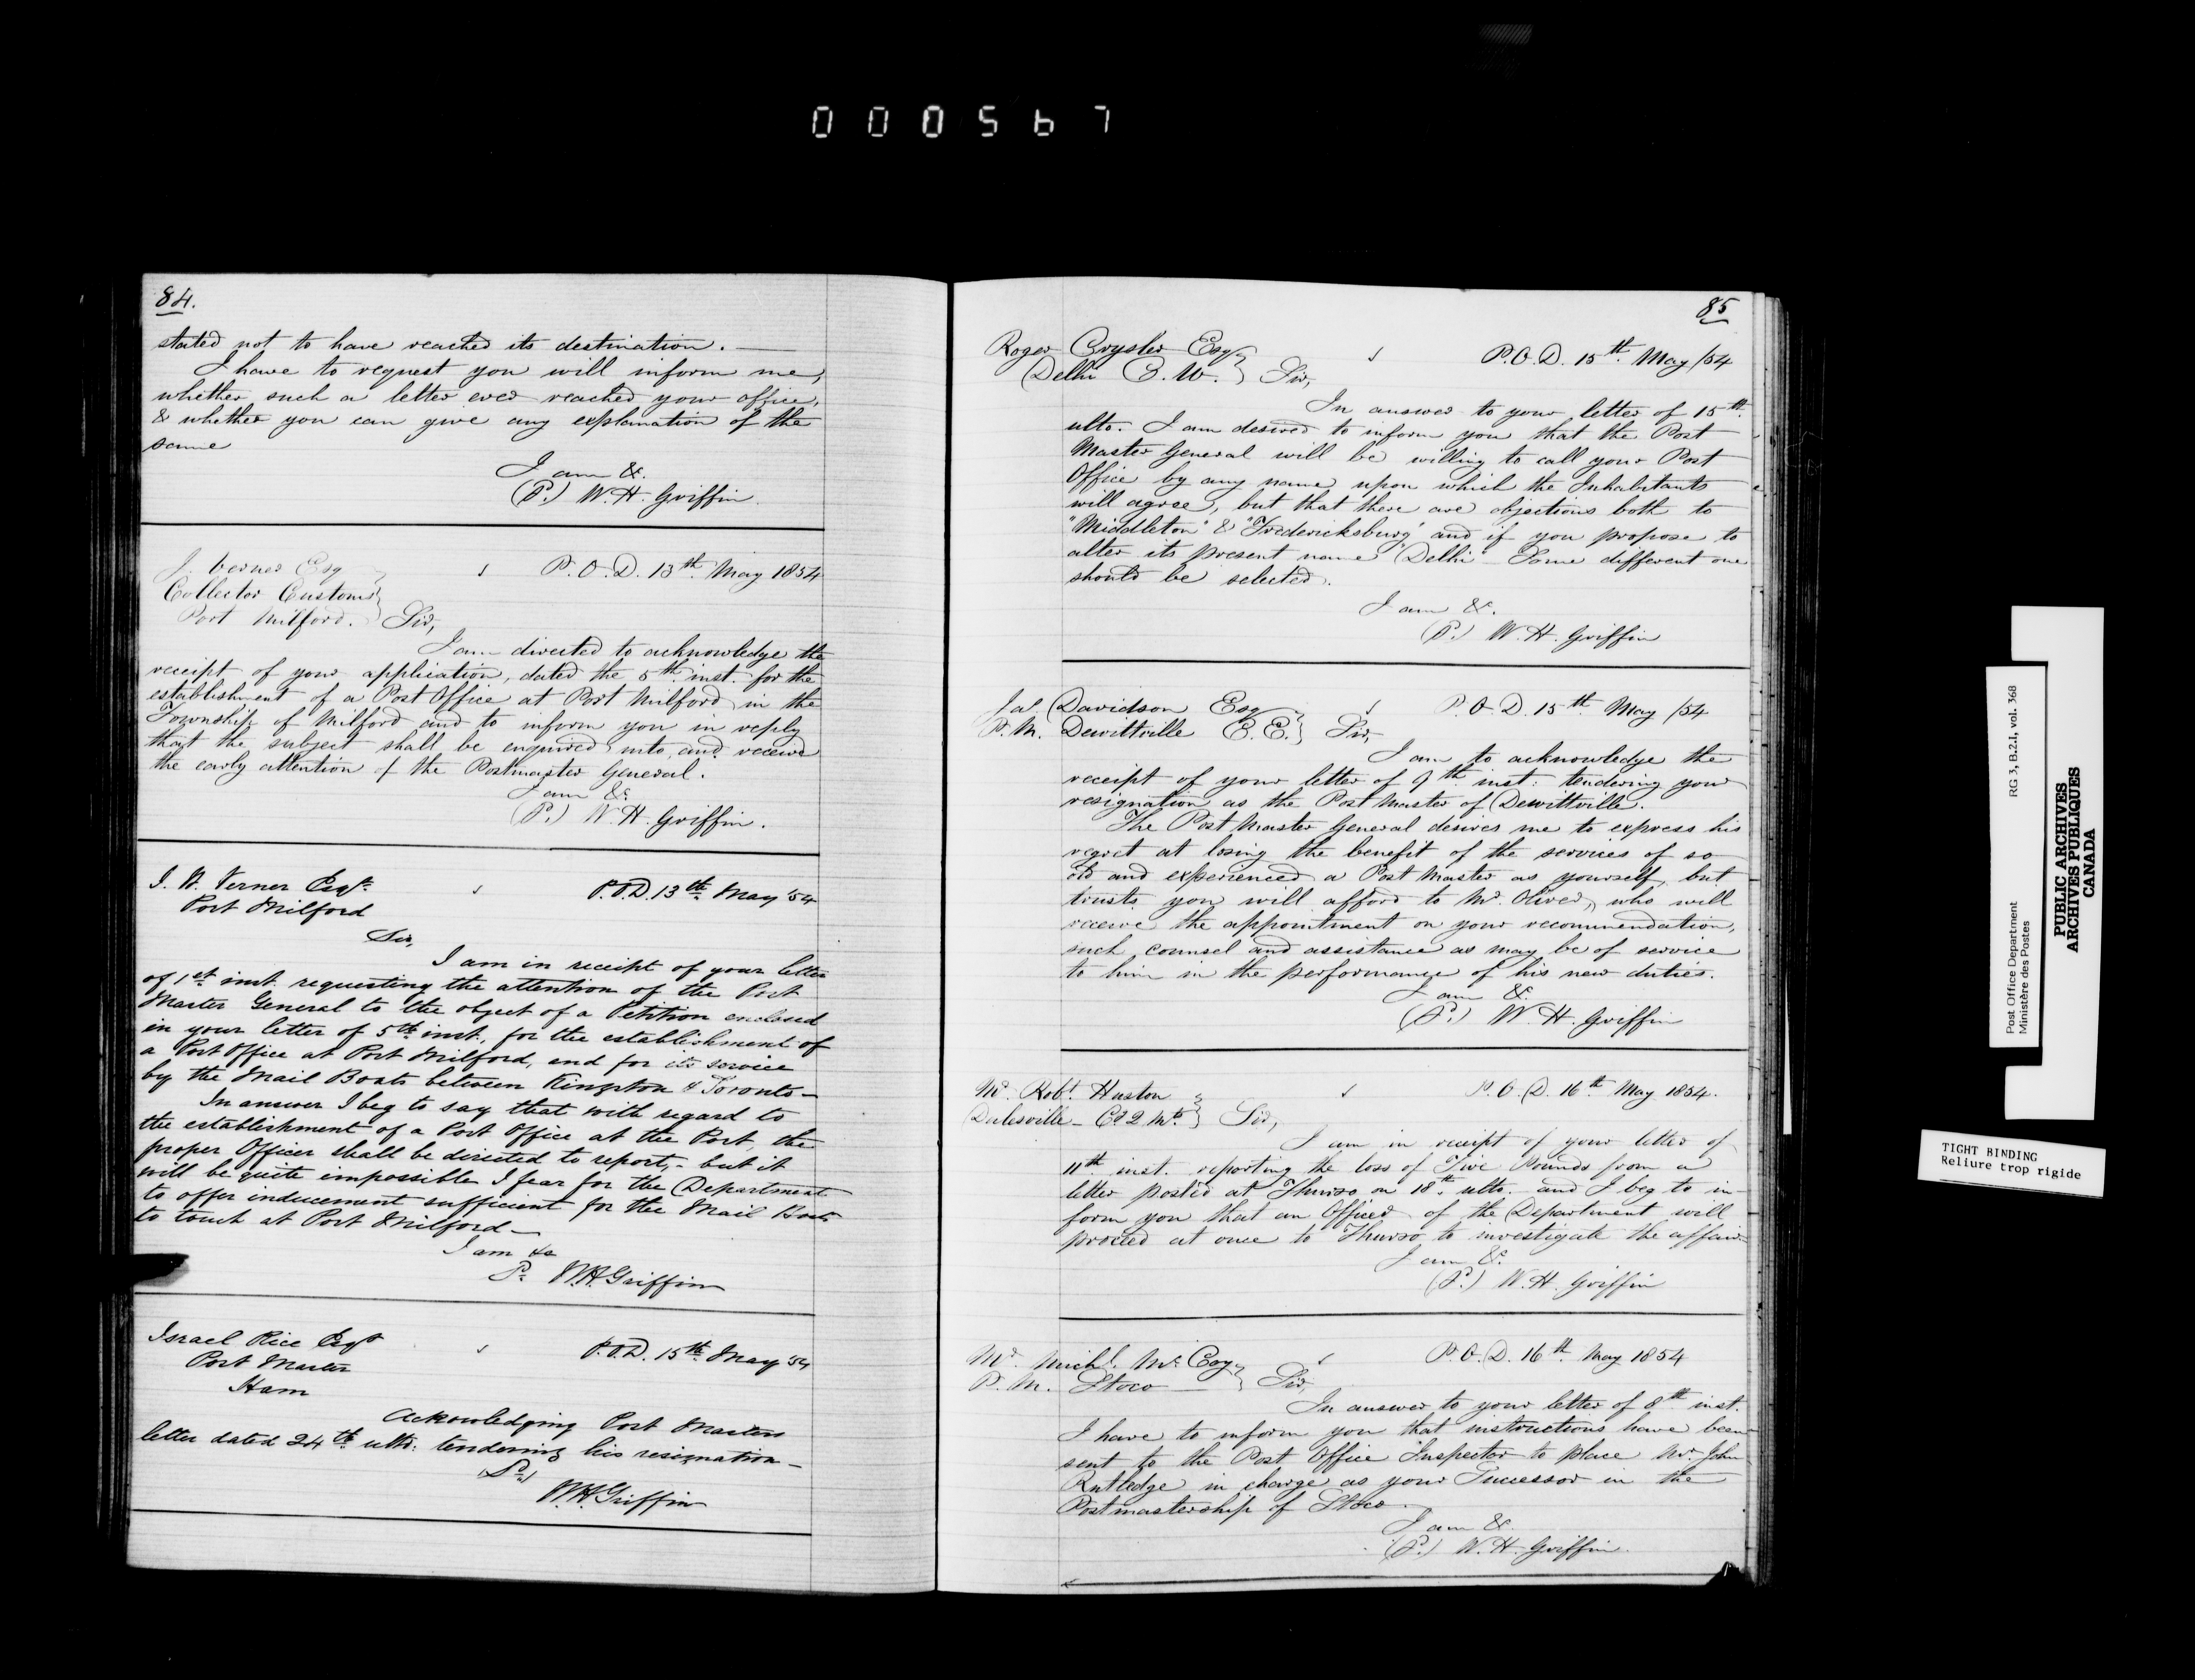 000567
84.
stated not to have reached its destination. —
I have to request you will inform me,
whether such a letter ever reached your office,
& whether you can give any explanation of the
same
I am &c.
(P.) W. H. Griffin
J. Verner Esq
Collector Customs
Port Milford. } Sir,
P. O. D. 13th May 1854
I am directed to acknowledge the
receipt of your application, dated the 5th inst. for the
establishment of a Post Office at Port Milford in the
Township of Milford and to inform you in reply
that the subject shall be enquired into and receive
the early attention of the Postmaster General.
I am &c.
(P.) W. H. Griffin.
J. W. Verner Esqr.
Port Milford
P.O.D. 13th May '54
Sir,
I am in receipt of your letter
of 1st inst. requesting the attention of the Post
Master General to the object of a Petition enclosed
in your letter of 5th inst., for the establishment of
a Post Office at Port Milford, and for its service
by the Mail Boats between Kingston & Toronto —
In answer I beg to say that with regard to
the establishment of a Post Office at the Port, the
proper Officer shall be directed to report, - but it
will be quite impossible I fear for the Department
to offer inducement sufficient for the Mail Boats
to touch at Port Milford —
I am &c
P. W.H. Griffin
Israel Rice Esqr
Post Master
Ham
P.O.D. 15th May '54
Acknowledging Post Masters
letter dated 24th ulto: tendering his resignation —
(P.)
W.H. Griffin
85
Roger Crysler Esq
Delhi C. W. } Sir,
P.O.D. 15th May /54
In answer to your letter of 15th
ulto. I am desired to inform you that the Post
Master General will be willing to call your Post
Office by any name upon which the Inhabitants
will agree, but that there are objections both to
"Middleton" & "Fredericksburg" and if you propose to
alter its present name "Delhi" Some different one
should be selected.
I am &c.
(P.) W. H. Griffin
Jas. Davidson Esq
P. M. Dewittville C. E. } Sir,
P. O. D. 15th May /54
I am to acknowledge the
receipt of your letter of 9th inst: tendering your
resignation as the Post Master of Dewittville.
The Post Master General desires me to express his
regret at losing the benefit of the services of so
old and experienced a Post Master as yourself, but
trusts you will afford to Mr. Oliver, who will
receive the appointment on your recommendation,
such counsel and assistance as may be of service
to him in the performance of his new duties.
I am &c.
(P.) W. H. Griffin
Mr. Robt. Huston
Dalesville — Co 2 Mts. } Sir,
P. O. D. 16th May 1854.
I am in receipt of your letter of
11th inst. reporting the loss of Five Pounds from a
letter posted at Thurso on 18th ulto. and I beg to in-
form you that an Officer of the Department will
proceed at once to Thurso to investigate the affair.
I am &c.
(P.) W. H. Griffin
Mr. Michl. McCoy
P. M. Stoco — } Sir,
P. O. D. 16th May 1854
In answer to your letter of 8th inst.
I have to inform you that instructions have been
sent to the Post Office Inspector to place Mr. John
Rutledge in charge as your Successor in the
Postmastership of Stoco.
I am &c.
(P.) W. H. Griffin.
Post Office Department RG 3, B.2.1, vol. 368
Ministère des Postes
PUBLIC ARCHIVES
ARCHIVES PUBLIQUES
CANADA
TIGHT BINDING
Reliure trop rigide